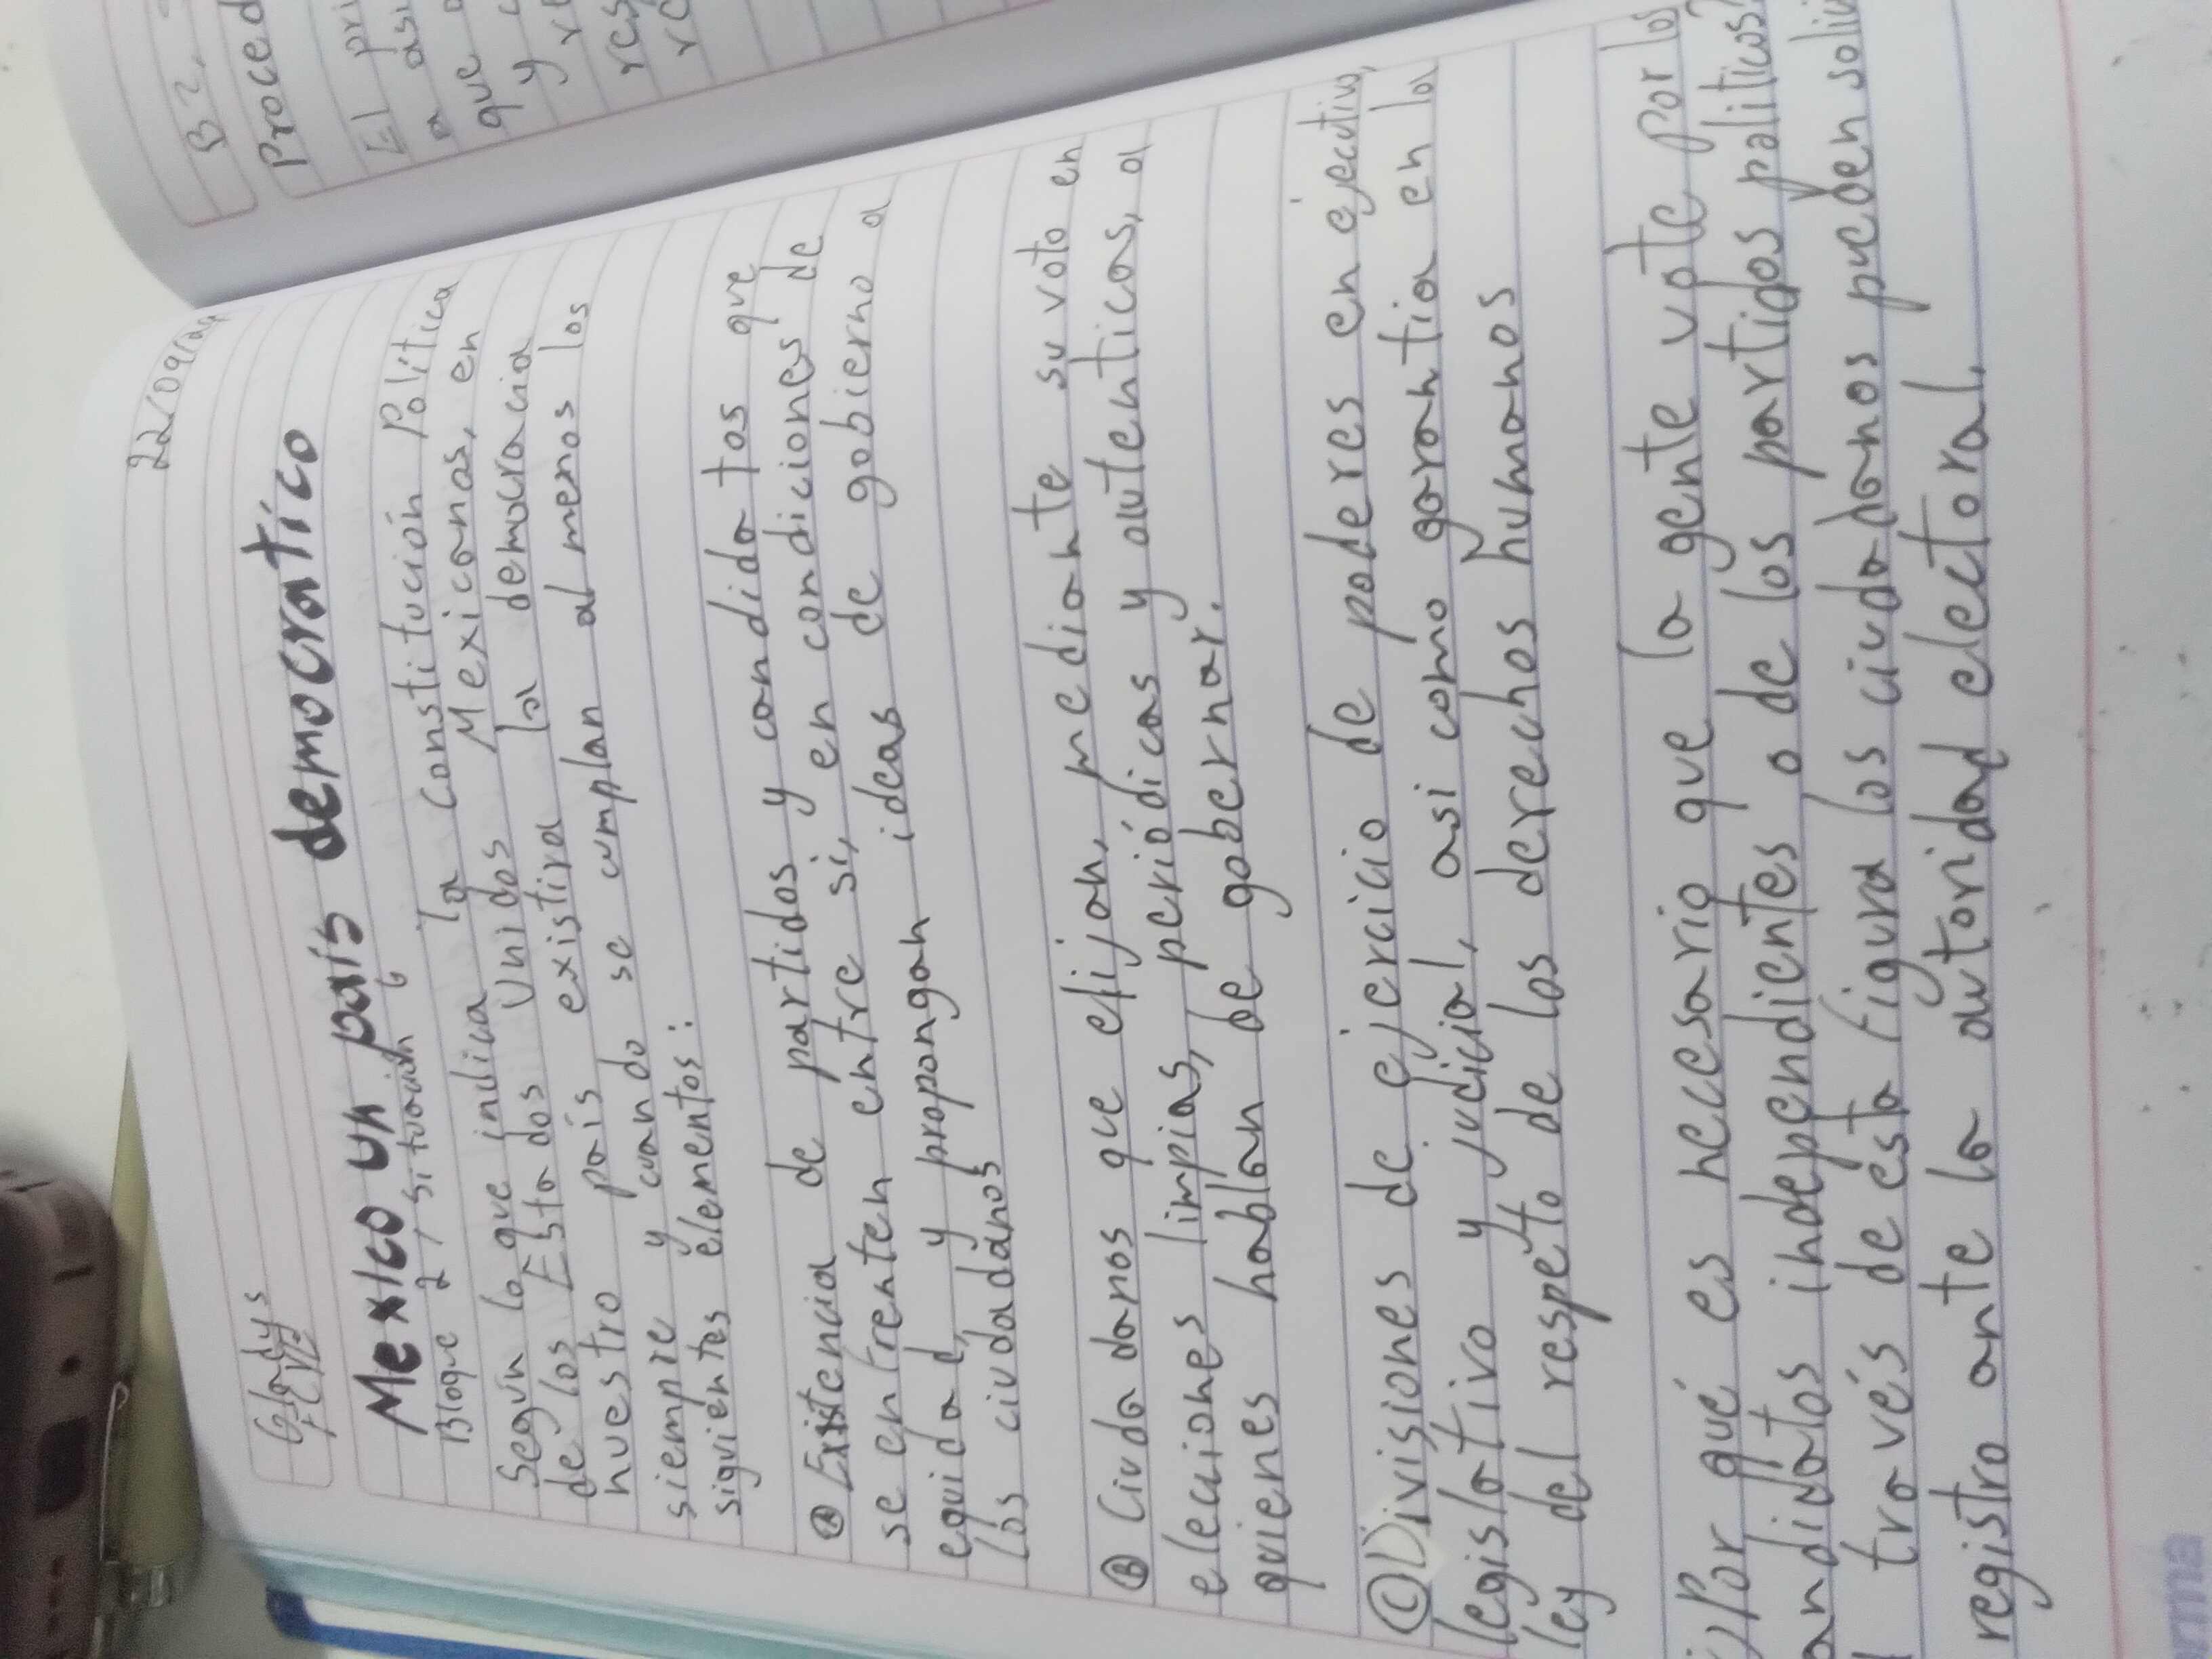 Gladys
FCYE
22/09/
México un país democratico
Bloque 2 / situación 6
Según lo que indica la Constitución Política
de los Estados Unidos Mexicanos, en
nuestro país existira la democracia
siempre y cuando se cumplan al menos los
siguientes elementos:
A Existencia de partidos y candidatos que
se enfrenten entre si, en condiciones de
equidad, y propongan ideas de gobierno a
los ciudadanos
B Ciudadanos que elijan, mediante su voto en
elecciones limpias, periódicas y autenticas, a
quienes hablan de gobernar.
C Divisiones de ejercicio de poderes en ejecutivo,
legislativo y judicial, asi como garantia en la
ley del respeto de los derechos humanos
¿Por qué es necesario que la gente vote por los
andidatos independientes o de los partidos politicos?
través de esta figura los ciudadanos pueden
registro ante la autoridad electoral.
B2.
Proced
El pri
a asi
que
y
re
res